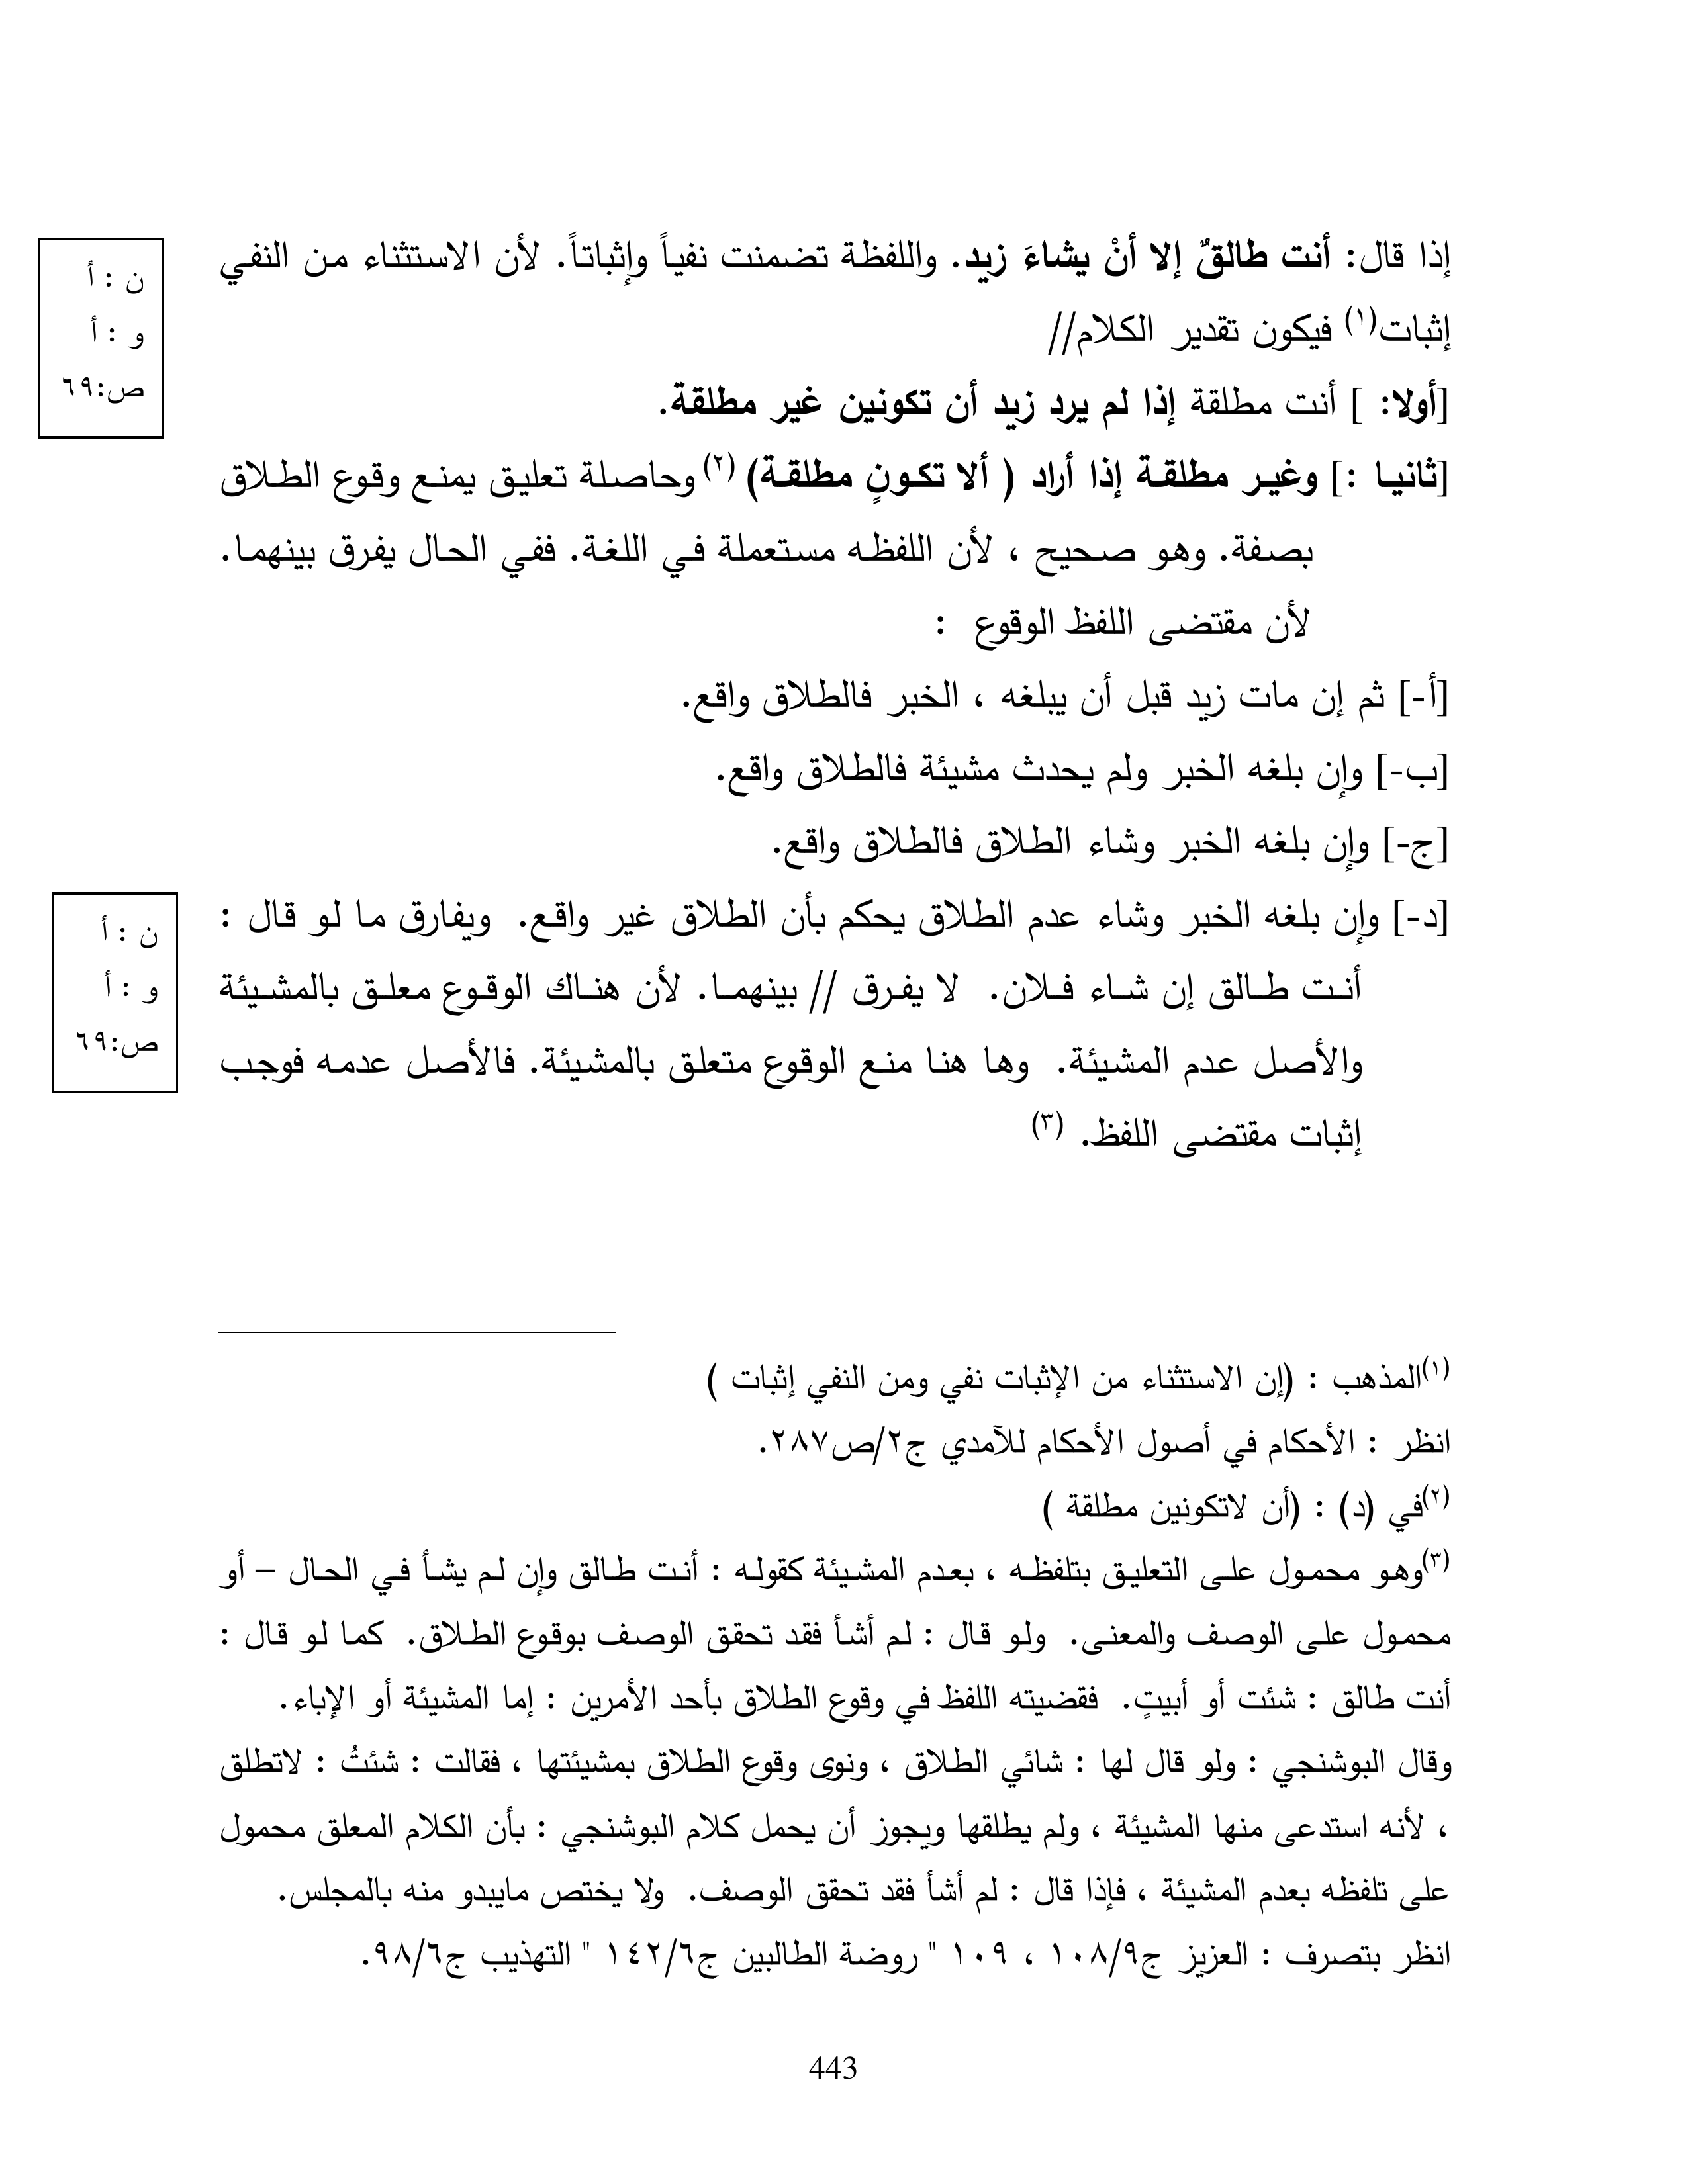 إذا قال: أنت طالقٌ إلا أنْ يشاءَ زيد. واللفظة تضمنت نفياً وإثباتاً. لأن الاستثناء من النفي
إثبات(١) فيكون تقدير الكلام//
[أولا: ] أنت مطلقة إذا لم يرد زيد أن تكونين غير مطلقة.
[ثانيا :] وغير مطلقة إذا أراد ( ألا تكونٍ مطلقة) (٢) وحاصلة تعليق يمنع وقوع الطلاق
بصفة. وهو صحيح ، لأن اللفظه مستعملة في اللغة. ففي الحال يفرق بينهما.
لأن مقتضى اللفظ الوقوع :
[أ-] ثم إن مات زيد قبل أن يبلغه ، الخبر فالطلاق واقع.
[ب-] وإن بلغه الخبر ولم يحدث مشيئة فالطلاق واقع.
[ج-] وإن بلغه الخبر وشاء الطلاق فالطلاق واقع.
[د-] وإن بلغه الخبر وشاء عدم الطلاق يحكم بأن الطلاق غير واقع. ويفارق ما لو قال :
أنت طالق إن شاء فلان. لا يفرق // بينهما. لأن هناك الوقوع معلق بالمشيئة
والأصل عدم المشيئة. وها هنا منع الوقوع متعلق بالمشيئة. فالأصل عدمه فوجب
إثبات مقتضى اللفظ. (٣)
ن : أ
و : أ
ص:٦٩
ن : أ
و : أ
ص:٦٩
(١)المذهب : (إن الاستثناء من الإثبات نفي ومن النفي إثبات )
انظر : الأحكام في أصول الأحكام للآمدي ج٢/ص٢٨٧.
(٢)في (د) : (أن لاتكونين مطلقة )
(٣)وهو محمول على التعليق بتلفظه ، بعدم المشيئة كقوله : أنت طالق وإن لم يشأ في الحال – أو
محمول على الوصف والمعنى. ولو قال : لم أشأ فقد تحقق الوصف بوقوع الطلاق. كما لو قال :
أنت طالق : شئت أو أبيتٍ. فقضيته اللفظ في وقوع الطلاق بأحد الأمرين : إما المشيئة أو الإباء.
وقال البوشنجي : ولو قال لها : شائي الطلاق ، ونوى وقوع الطلاق بمشيئتها ، فقالت : شئتُ : لاتطلق
، لأنه استدعى منها المشيئة ، ولم يطلقها ويجوز أن يحمل كلام البوشنجي : بأن الكلام المعلق محمول
على تلفظه بعدم المشيئة ، فإذا قال : لم أشأ فقد تحقق الوصف. ولا يختص مايبدو منه بالمجلس.
انظر بتصرف : العزيز ج٩/١٠٨ ، ١٠٩ " روضة الطالبين ج٦/١٤٢ " التهذيب ج٦/٩٨.
443